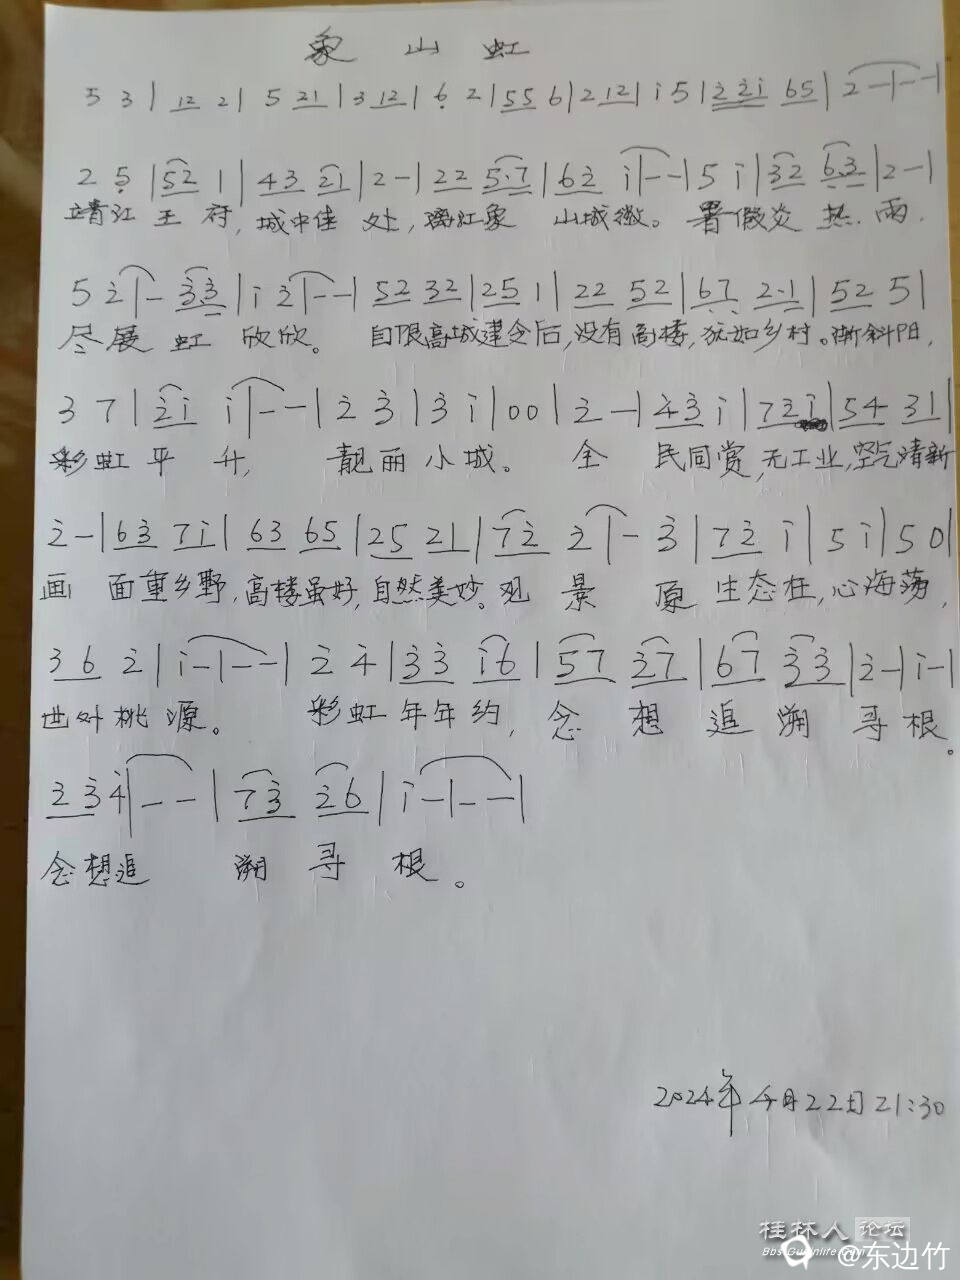 象山虹
5 3 | 12 2 | 5 21 | 3 12 | 6 2 | 55 6 | 2 12 | i 5 | 2 2i 65 | 2 - | - - |
2 5 | 52 1 | 43 2i | 2 - | 22 5·7 | 62 i | - - | 5 i | 32 6·3 | 2 - |
靖江王府,城中佳处,漓江象山城徽。署假炎热.雨.
5 2 | - 33 | i 2 | - - | 52 32 | 25 1 | 22 52 | 67 2·1 | 52 5 |
尽展虹欣欣。自限高城建令后,没有高楼,犹如乡村。渐斜阳,
3 7 | 2i i | - - | 2 3 | 3 i | 0 0 | 2 - | 43 i | 72 i | 54 31 |
彩虹平升,靓丽小城。全民同赏,无工业,空气清新
2 - | 63 7i | 63 65 | 25 21 | 72 2 | - 3 | 72 i | 5 i | 5 0 |
画面重乡野,高楼虽好,自然美妙。观景原生态在,心海荡,
3 6 2 | i - | - - | 2 4 | 33 i6 | 57 27 | 67 33 | 2 - | i - |
世外桃源。彩虹年年约,念想追溯寻根。
2 3 4 | - - | 73 26 | i - | - - |
念想追溯寻根。
2024年4月22日21:30
桂林人论坛
Bbs.Guilinlife.Com
@东边竹